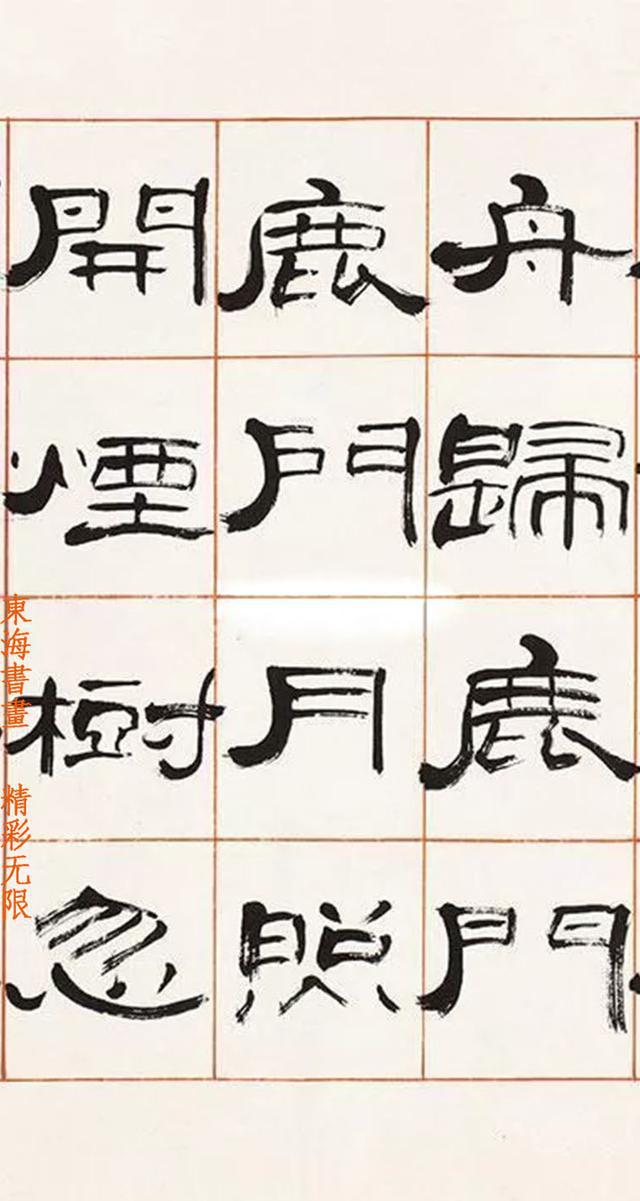 舟歸鹿門
鹿門月照
開煙樹忽
東海書畫 精彩无限